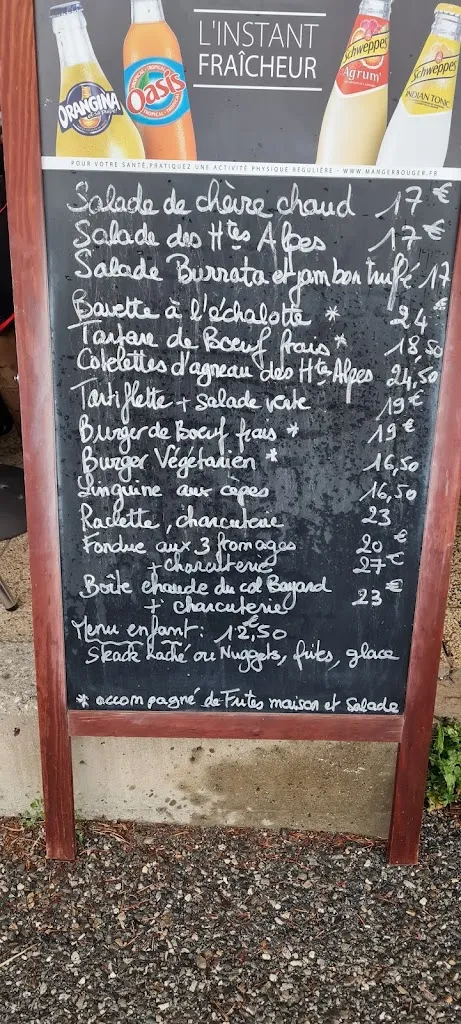 L'INSTANT
FRAÎCHEUR
ORANGINA
TROPICAL
Oasis
TROPICAL
Schweppes
Agrum'
Schweppes
INDIAN TONIC
POUR VOTRE SANTÉ, PRATIQUEZ UNE ACTIVITÉ PHYSIQUE RÉGULIÈRE - WWW.MANGERBOUGER.FR
Salade de chèvre chaud 17€
Salade des Htes Alpes 17€
Salade Burrata et jambon truffé 17€
Bavette à l'échalotte * 24
Tartare de Boeuf frais * 18,50
Cotelettes d'agneau des Htes Alpes 24,50
Tartiflette + salade verte 19€
Burger de Boeuf frais * 19€
Burger Végétarien * 16,50
Linguine aux cèpes 16,50
Raclette, charcuterie 23
Fondue aux 3 fromages 20€
+ charcuterie 27€
Boîte chaude du col Bayard 23€
+ charcuterie
Menu enfant : 12,50€
Steack haché ou Nuggets, frites, glace
* accompagné de Frites maison et Salade